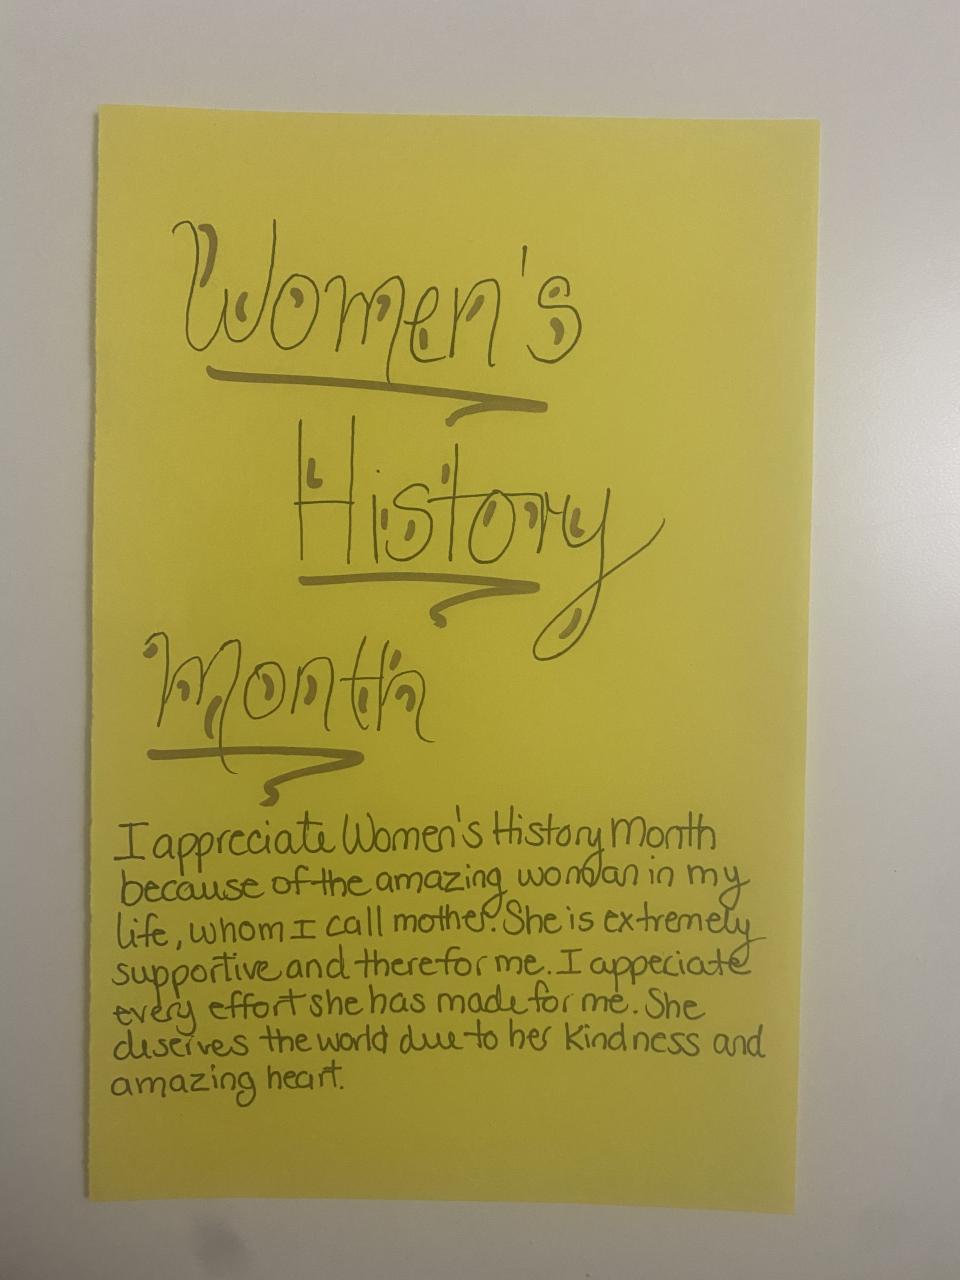 Women's
History
Month
I appreciate Women's History Month
because of the amazing woman in my
life, whom I call mother. She is extremely
supportive and there for me. I appeciate
every effort she has made for me. She
deserves the world due to her kindness and
amazing heart.